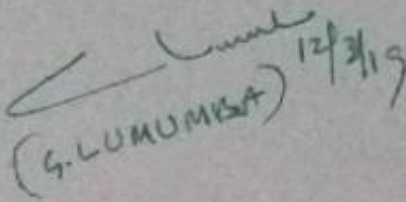 12/3/19
(G. LUMUMBA)